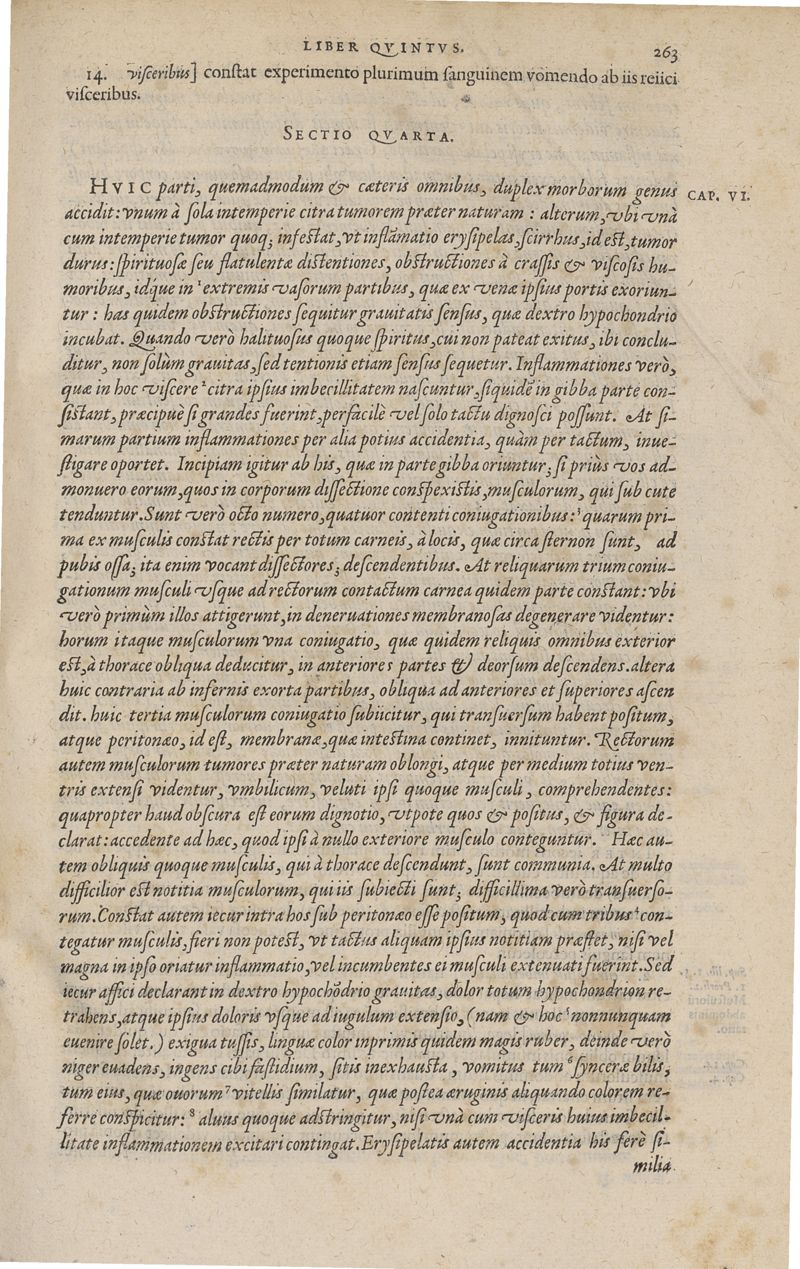 LIBER QVINTVS. 263
14. visceribus] constat experimento plurimum sanguinem vomendo ab iis reiici
visceribus.
SECTIO QVARTA.
HVIC parti, quemadmodum & cæteris omnibus, duplex morborum genus CAP. VI.
accidit: vnum à sola intemperie citra tumorem præter naturam: alterum, vbi vnà
cum intemperie tumor quoq; infestat, vt inflãmatio erysipelas, scirrhus, id est, tumor
durus: spirituosæ seu flatulentæ distentiones, obstructiones à crassis & viscosis hu-
moribus, idque in ¹extremis vasorum partibus, quæ ex venæ ipsius portis exoriun-
tur: has quidem obstructiones sequitur grauitatis sensus, quæ dextro hypochondrio
incubat. Quando verò halituosus quoque spiritus, cui non pateat exitus, ibi conclu-
ditur, non solùm grauitas, sed tentionis etiam sensus sequetur. Inflammationes verò,
quæ in hoc viscere ²citra ipsius imbecillitatem nascuntur, siquidẽ in gibba parte con-
sistant, præcipuè si grandes fuerint, perfacilè vel solo tactu dignosci possunt. At si-
marum partium inflammationes per alia potius accidentia, quàm per tactum, inue-
stigare oportet. Incipiam igitur ab his, quæ in parte gibba oriuntur; si priùs vos ad-
monuero eorum, quos in corporum dissectione conspexistis, musculorum, qui sub cute
tenduntur. Sunt verò octo numero, quatuor contenti coniugationibus: ³quarum pri-
ma ex musculis constat rectis per totum carneis, à locis, quæ circa sternon sunt, ad
pubis ossa; ita enim vocant dissectores; descendentibus. At reliquarum trium coniu-
gationum musculi vsque ad rectorum contactum carnea quidem parte constant: vbi
verò primùm illos attigerunt, in deneruationes membranosas degenerare videntur:
horum itaque musculorum vna coniugatio, quæ quidem reliquis omnibus exterior
est, à thorace obliqua deducitur, in anteriores partes & deorsum descendens. altera
huic contraria ab infernis exorta partibus, obliqua ad anteriores et superiores ascen
dit. huic tertia musculorum coniugatio subiicitur, qui transuersum habent positum,
atque peritonæo, id est, membranæ, quæ intestina continet, innituntur. Rectorum
autem musculorum tumores præter naturam oblongi, atque per medium totius ven-
tris extensi videntur, vmbilicum, veluti ipsi quoque musculi, comprehendentes:
quapropter haud obscura est eorum dignotio, vtpote quos & positus, & figura de-
clarat: accedente ad hæc, quod ipsi à nullo exteriore musculo conteguntur. Hæc au-
tem obliquis quoque musculis, qui à thorace descendunt, sunt communia. At multo
difficilior est notitia musculorum, qui iis subiecti sunt; difficillima verò transuerso-
rum. Constat autem iecur intra hos sub peritonæo esse positum, quod cum tribus ⁴con-
tegatur musculis, fieri non potest, vt tactus aliquam ipsius notitiam præstet, nisi vel
magna in ipso oriatur inflammatio, vel incumbentes ei musculi extenuati fuerint. Sed
iecur affici declarant in dextro hypochõdrio grauitas, dolor totum hypochondrion re-
trahens, atque ipsius doloris vsque ad iugulum extensio, (nam & hoc ⁵nonnunquam
euenire solet.) exigua tussis, linguæ color inprimis quidem magis ruber, deinde verò
niger euadens, ingens cibi fastidium, sitis inexhausta, vomitus tum ⁶synceræ bilis,
tum eius, quæ ouorum ⁷vitellis similatur, quæ postea æruginis aliquando colorem re-
ferre conspicitur: ⁸ aluus quoque adstringitur, nisi vnà cum visceris huius imbecil-
litate inflammationem excitari contingat. Erysipelatis autem accidentia his ferè si-
milia.